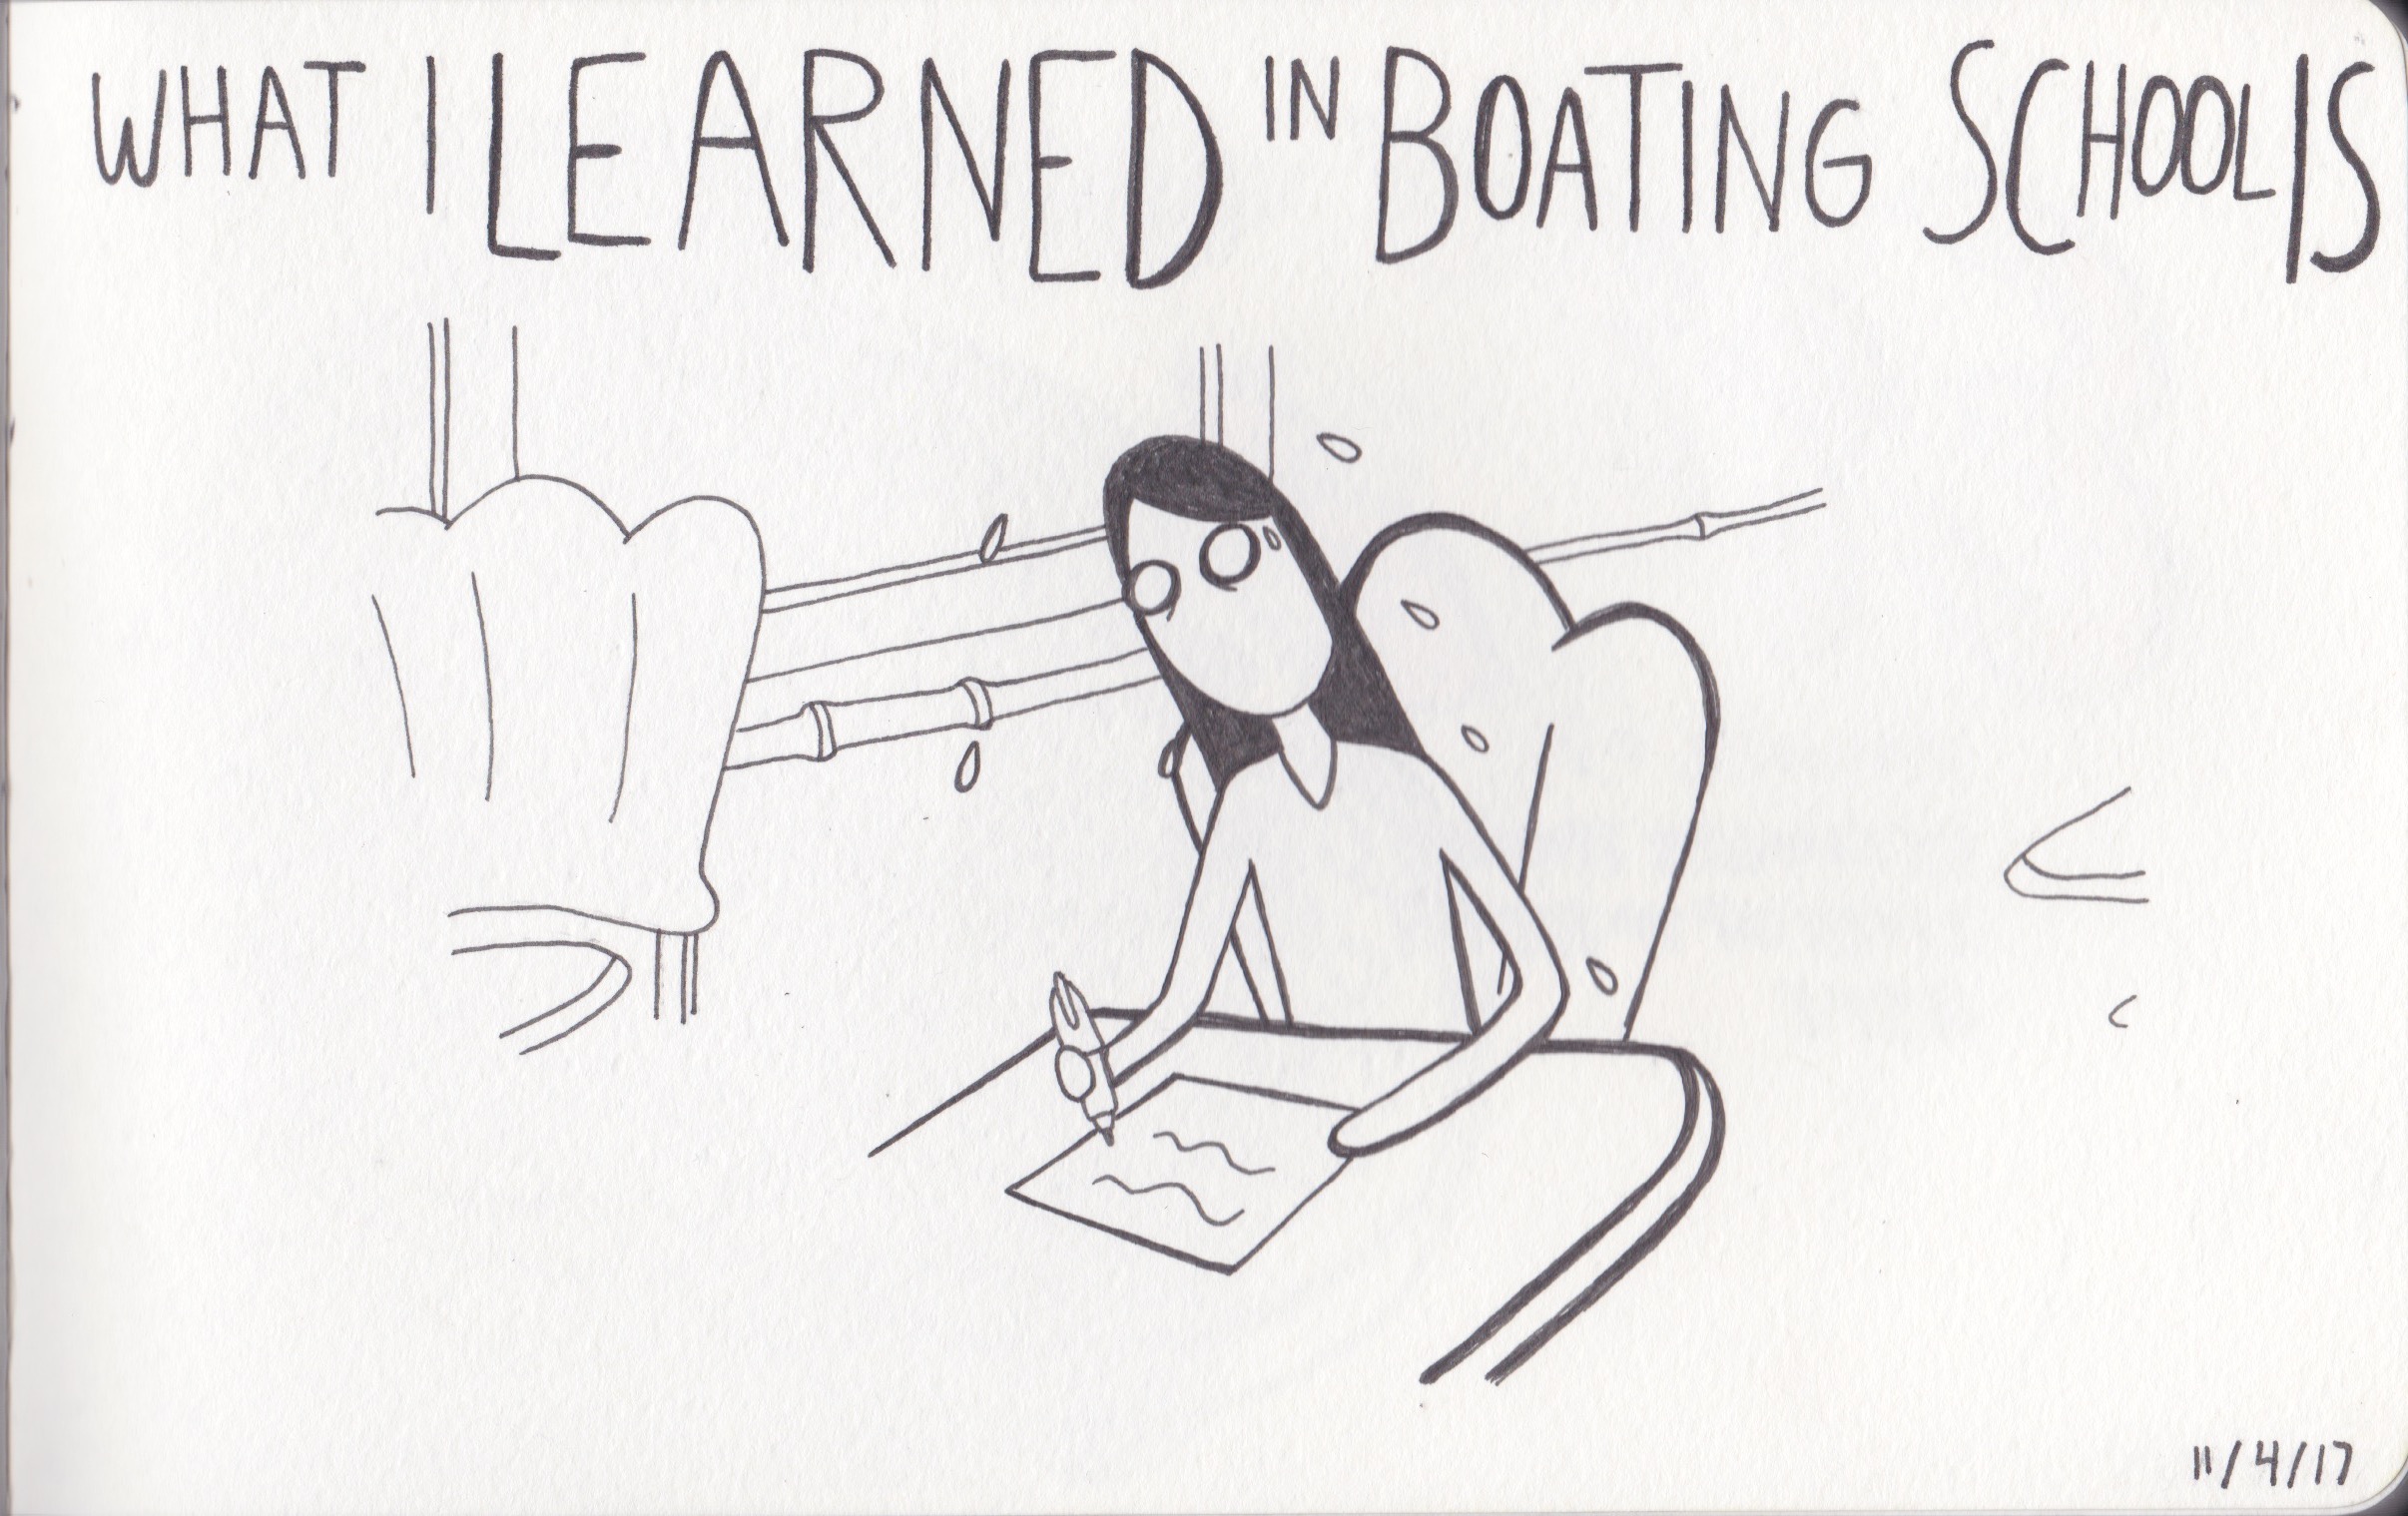 WHAT I LEARNED IN BOATING SCHOOL IS
11/4/17